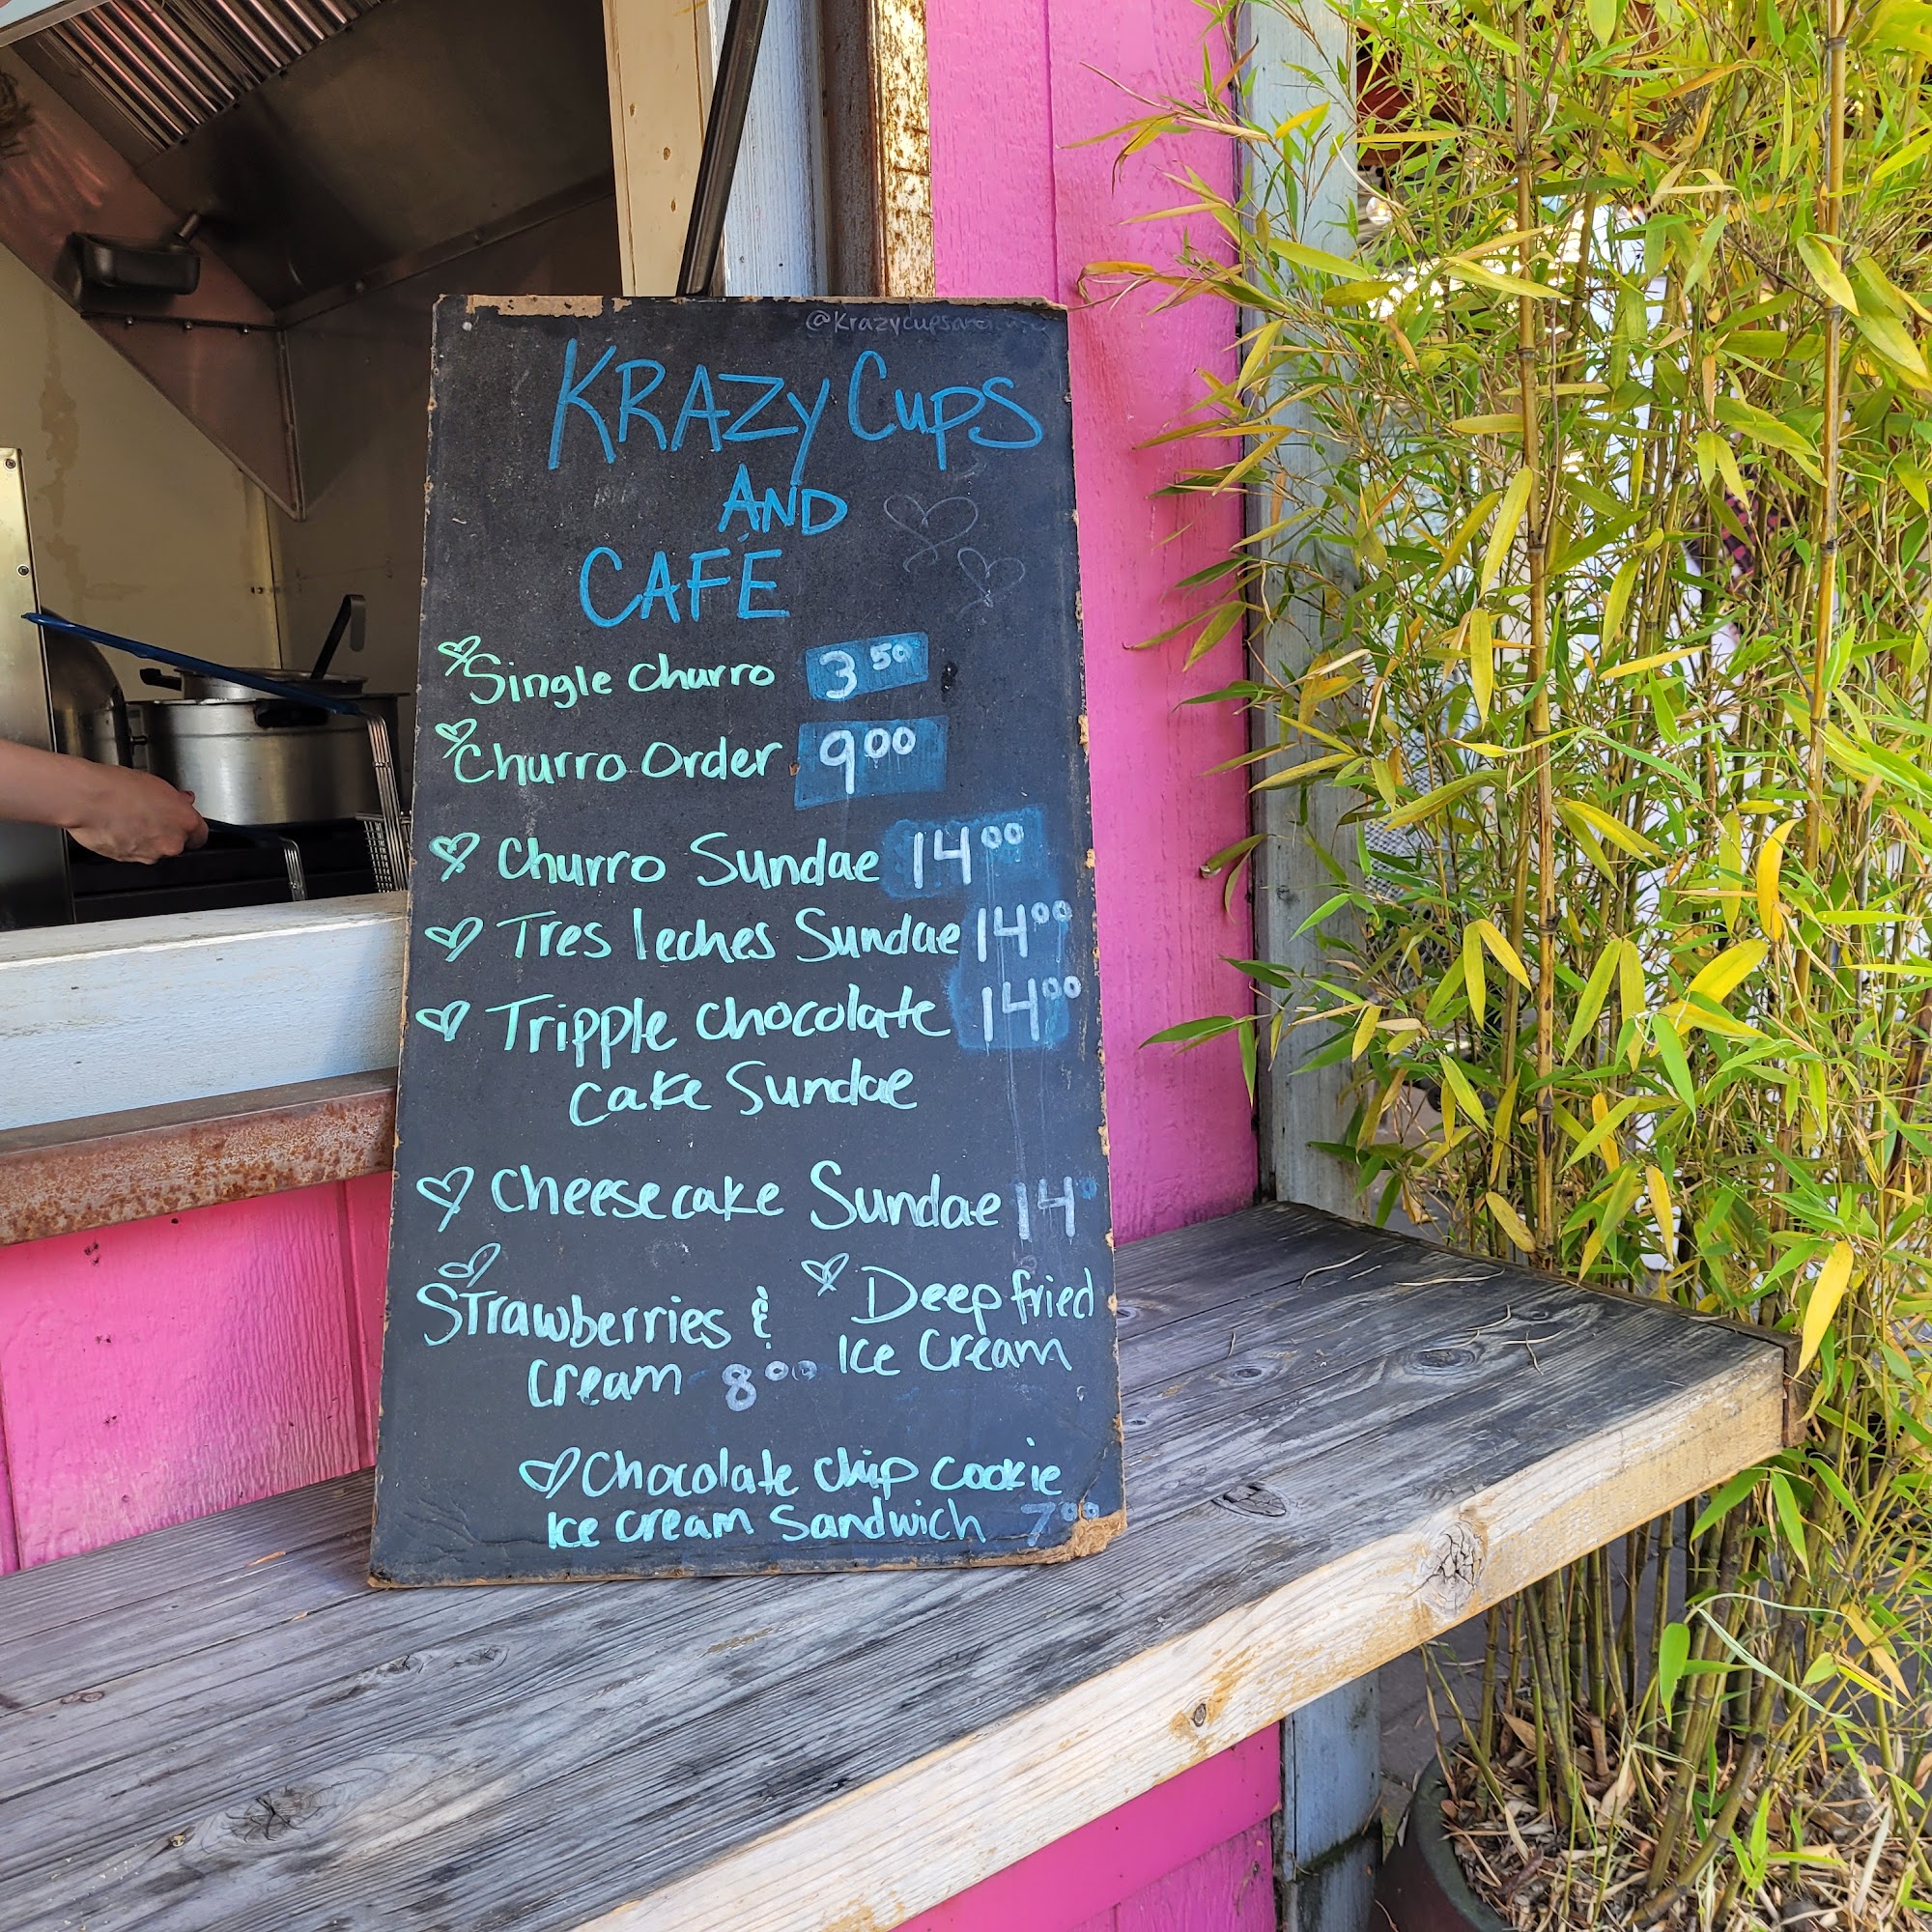 KRAZY CUPS
AND
CAFE
Single Churro 3 50
Churro Order 9 00
Churro Sundae 14 00
Tres leches Sundae 14 00
Tripple chocolate 14 00
Cake Sundae
Cheesecake Sundae 14
Strawberries &
Cream 8 00
Deep fried
Ice Cream
Chocolate chip cookie
Ice cream Sandwich 7 00